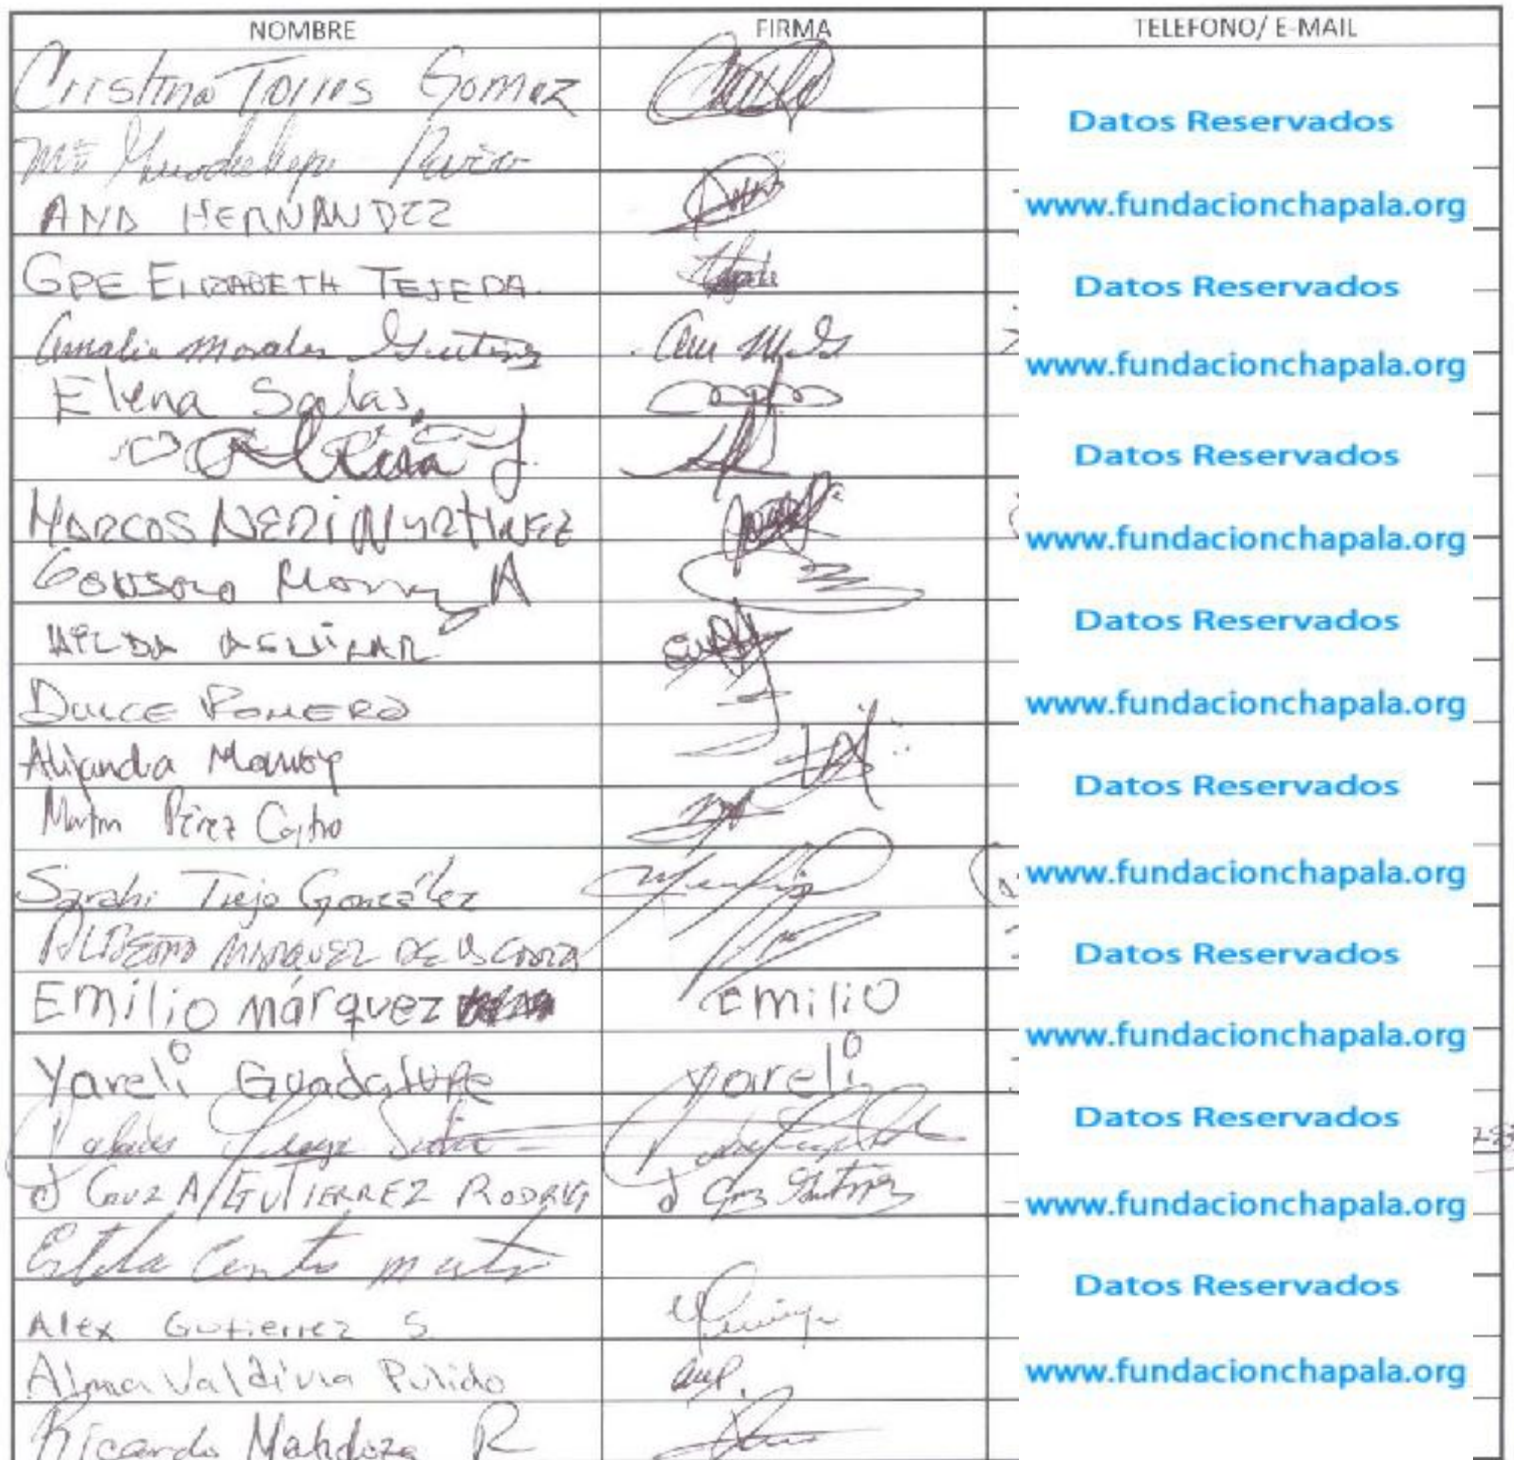 NOMBRE FIRMA TELEFONO/ E-MAIL
Cristina Torres Gomez
Datos Reservados
Mª Guadalupe
ANA HERNANDEZ
www.fundacionchapala.org
GPE ELIZABETH TEJEDA.
Datos Reservados
Amalia Morales Gutierrez
www.fundacionchapala.org
Elena Salas.
Alicia J.
Datos Reservados
MARCOS NERI MARTINEZ
www.fundacionchapala.org
HILDA AGUILAR
Datos Reservados
DULCE ROMERO
www.fundacionchapala.org
Alejandra Monroy
Datos Reservados
Martin Pérez Castro
Sarahi Trejo González
www.fundacionchapala.org
ALBERTO MARQUEZ DE
Datos Reservados
Emilio márquez Emilio
www.fundacionchapala.org
Yareli Guadalupe yareli
Datos Reservados
J CRUZ A GUTIERREZ RODRIG J Cruz Gutierrez
www.fundacionchapala.org
Estela
Datos Reservados
Alex Gutierrez S
Alma Valdivia Pulido AVP.
www.fundacionchapala.org
Ricardo Mendoza R